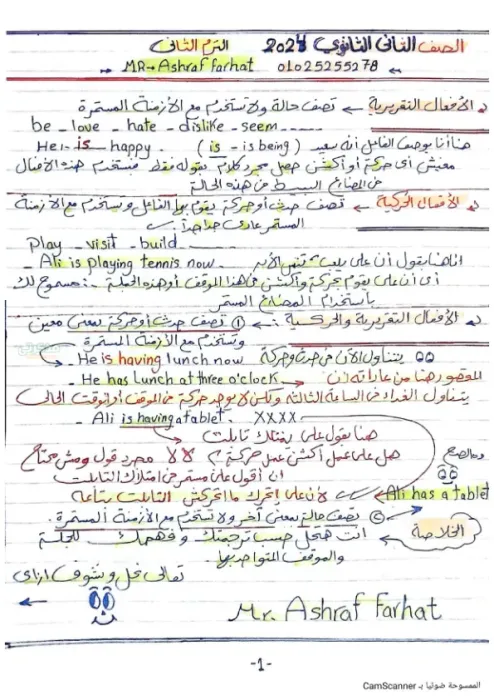 الصف الثانى الثانوي 2024 الترم الثانى
MR. Ashraf Farhat 01025255278
الأفعال التقريرية ← تصف حالة ولا تستخدم مع الأزمنة المستمرة
be _ love _ hate _ dislike _ seem
He:- is happy. ( is - is being ) هنا أنا بوصف الفاعل أنه سعيد
مفيش أى حركة أو أكشن حصل مجرد كلام بقوله فقط فتستخدم هذه الأفعال
فى المضارع البسيط فى هذه الحالة
الأفعال الحركية ← تصف حدث أو حركة يقوم بها الفاعل وتستخدم مع الأزمنة
المستمر عادى جداً
Play _ visit _ build
- Ali is playing tennis now انا هنا بقول أن على يلعب تنس الآن
أى أن على يقوم بحركة وأكشن فى هذا الموقف أو هذه الجملة مسموح لك
باستخدام المضارع المستمر
الأفعال التقريرية والحركية :- ① تصف حدث أو حركة بمعنى معين
وتستخدم مع الأزمنة المستمرة
He is having lunch now يتناول الآن فى حدث وحركة
- He has lunch at three o'clock المقصود هنا من عاداته أن
يتناول الغداء فى الساعة الثالثة ولكن لا يوجد حركة فى الموقف أو الوقت الحالى
- Ali is having a tablet. XXXX
هنا بقول على يمتلك تابلت
هل على عمل أكشن عمل حركة؟ لا لا مجرد قول ومش محتاج
ان أقول على مستمر فى امتلاك التابلت
والصح
لأن على اتحرك ما اتحركش التابلت بتاعه
Ali has a tablet
② تصف حالة بمعنى آخر ولا تستخدم مع الأزمنة المستمرة.
الخلاصة
انت هتحل حسب ترجمتك وفهمك للجملة
والموقف المتواجد بها.
تعالى نحل ونشوف ازاى
Mr. Ashraf Farhat
-1-
الممسوحة ضوئيا بـ CamScanner